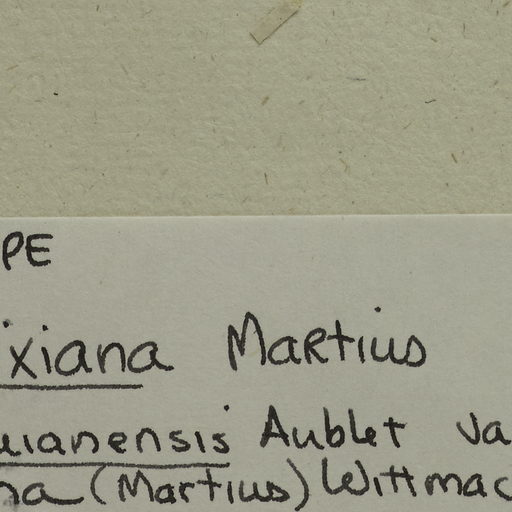 PE
ixiana Martius
uianensis Aublet va
na (Martius) Wittmac